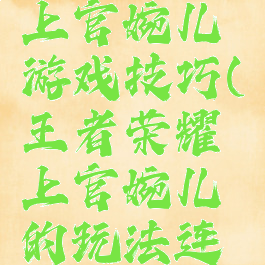 上官婉儿
游戏技巧(
王者荣耀
上官婉儿
的玩法连